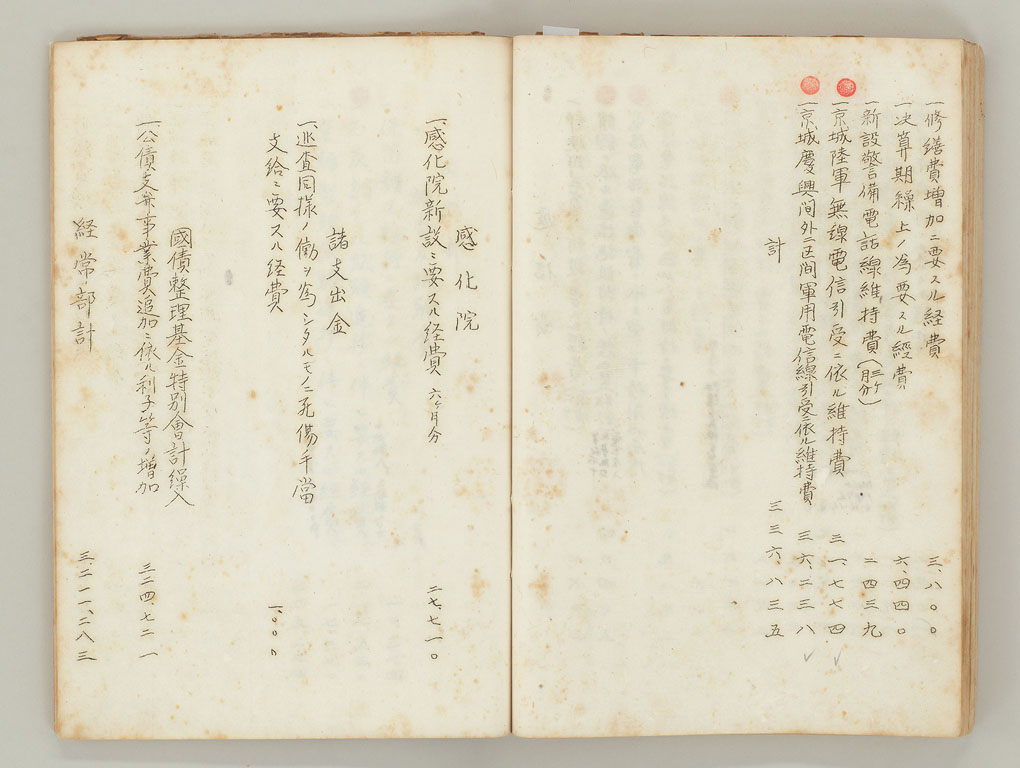 一修繕費増加ニ要スル経費 三、八〇〇
一決算期繰上ノ為要スル經費 六、四四〇
一新設警備電話線維持費 二四三九
一京城陸軍無線電信引受ニ依ル維持費 三一、七七四
一京城慶興間外ニ区間軍用電信線引受ニ依ル維持費 三六、二三八
計 三三六、八三五
感化院
一、感化院新設ニ要スル経費 六ヶ月分 二七、七一〇
諸支出金
一、巡査同様ノ働ヲ為シタルモノニ死傷手當
支給ニ要スル経費 一、〇〇〇
國債整理基金特別會計繰入
一、公債支弁事業費追加ニ依ル利子等ノ増加 三二四、七二一
経常部計 三、二一一、二八三